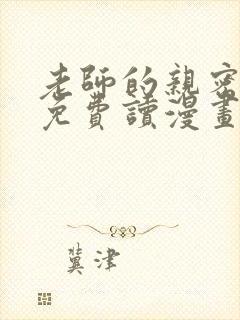 老師的親密
免費讀漫畫
冀津